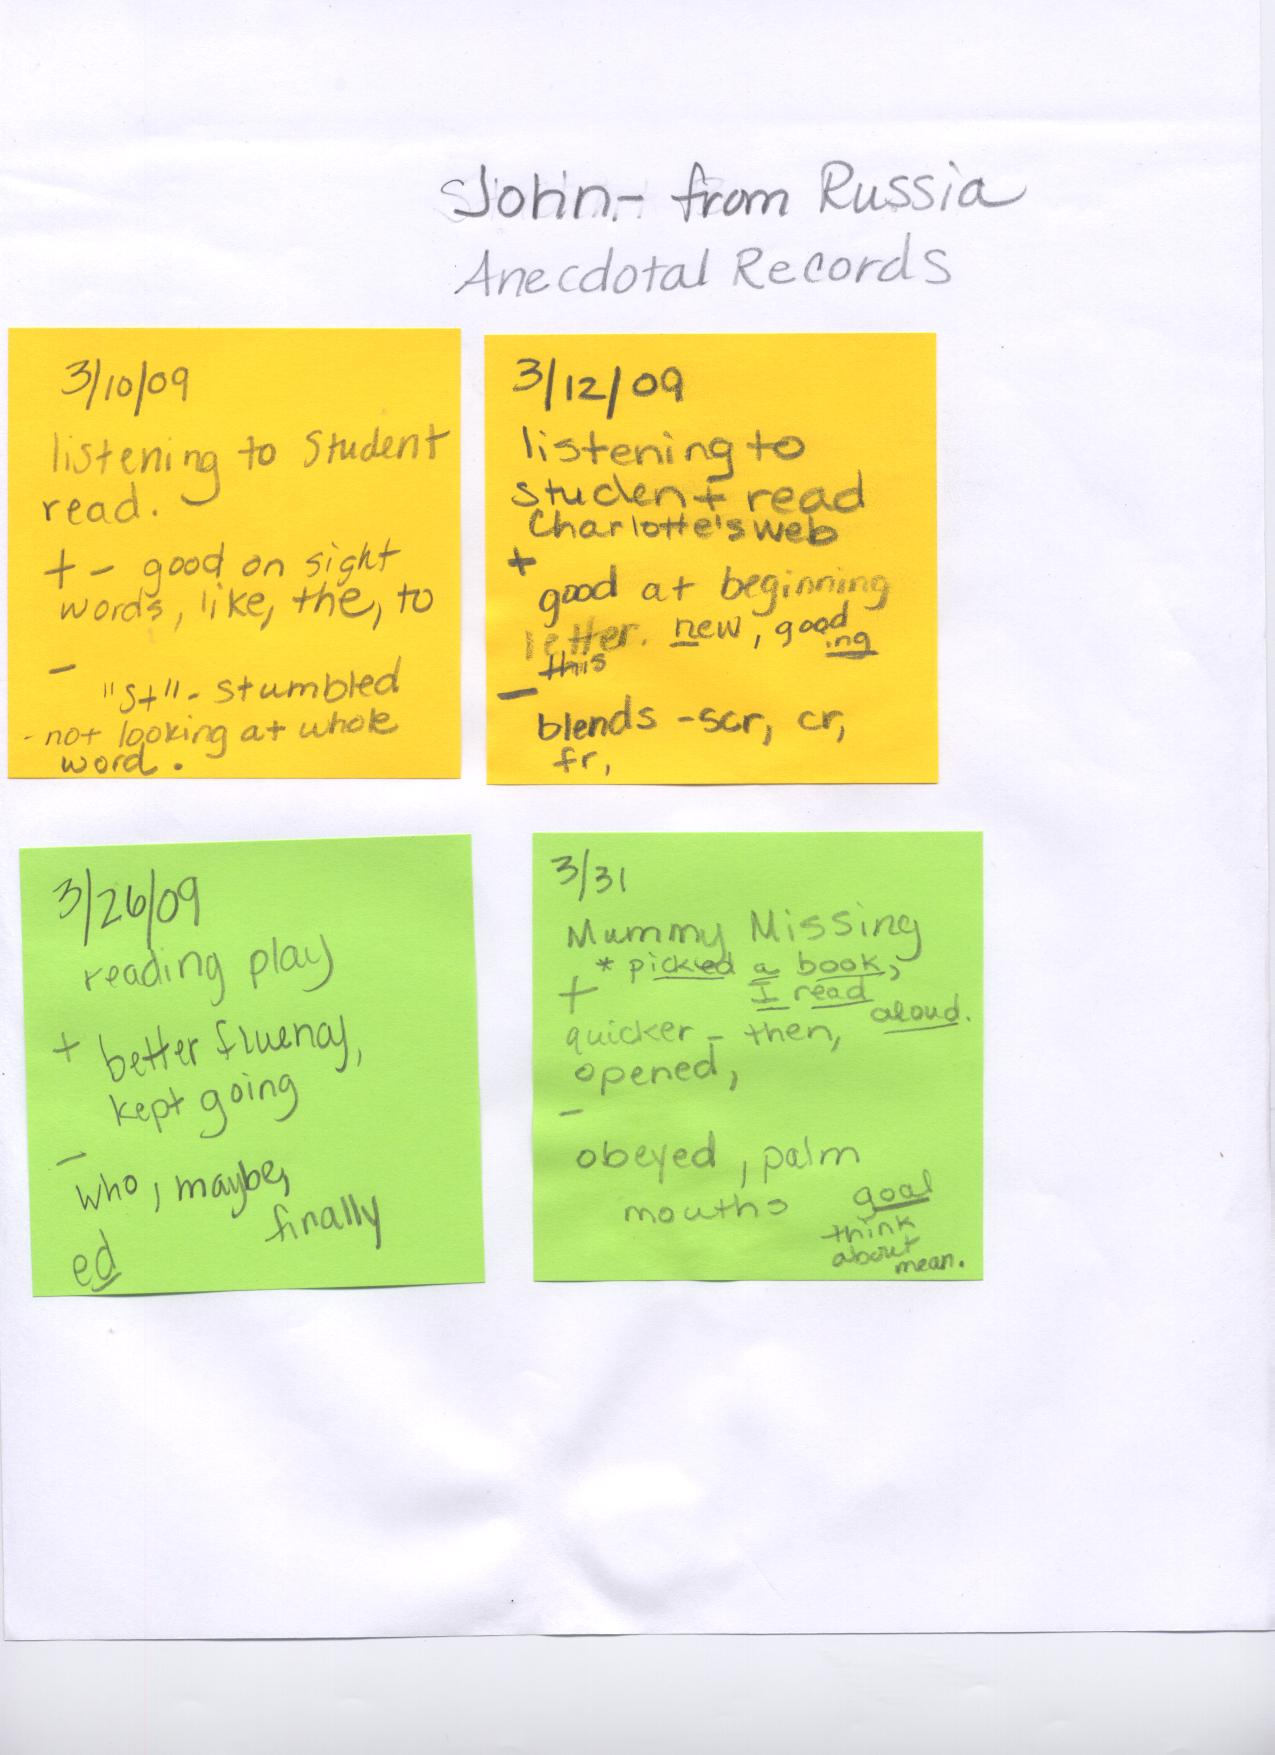 John - from Russia
Anecdotal Records
3/10/09
listening to Student
read.
+ - good on sight
words, like, the, to
-
"St" - stumbled
- not looking at whole
word.
3/12/09
listening to
student read
Charlotte's web
+
good at beginning
letter. new, good
this ing
-
blends - scr, cr,
fr,
3/26/09
reading play
+ better fluency,
kept going
-
who, maybe,
finally
ed
3/31
Mummy Missing
* picked a book,
+ I read
aloud.
quicker - then,
opened,
-
obeyed, palm
mouths
goal
think
about
mean.